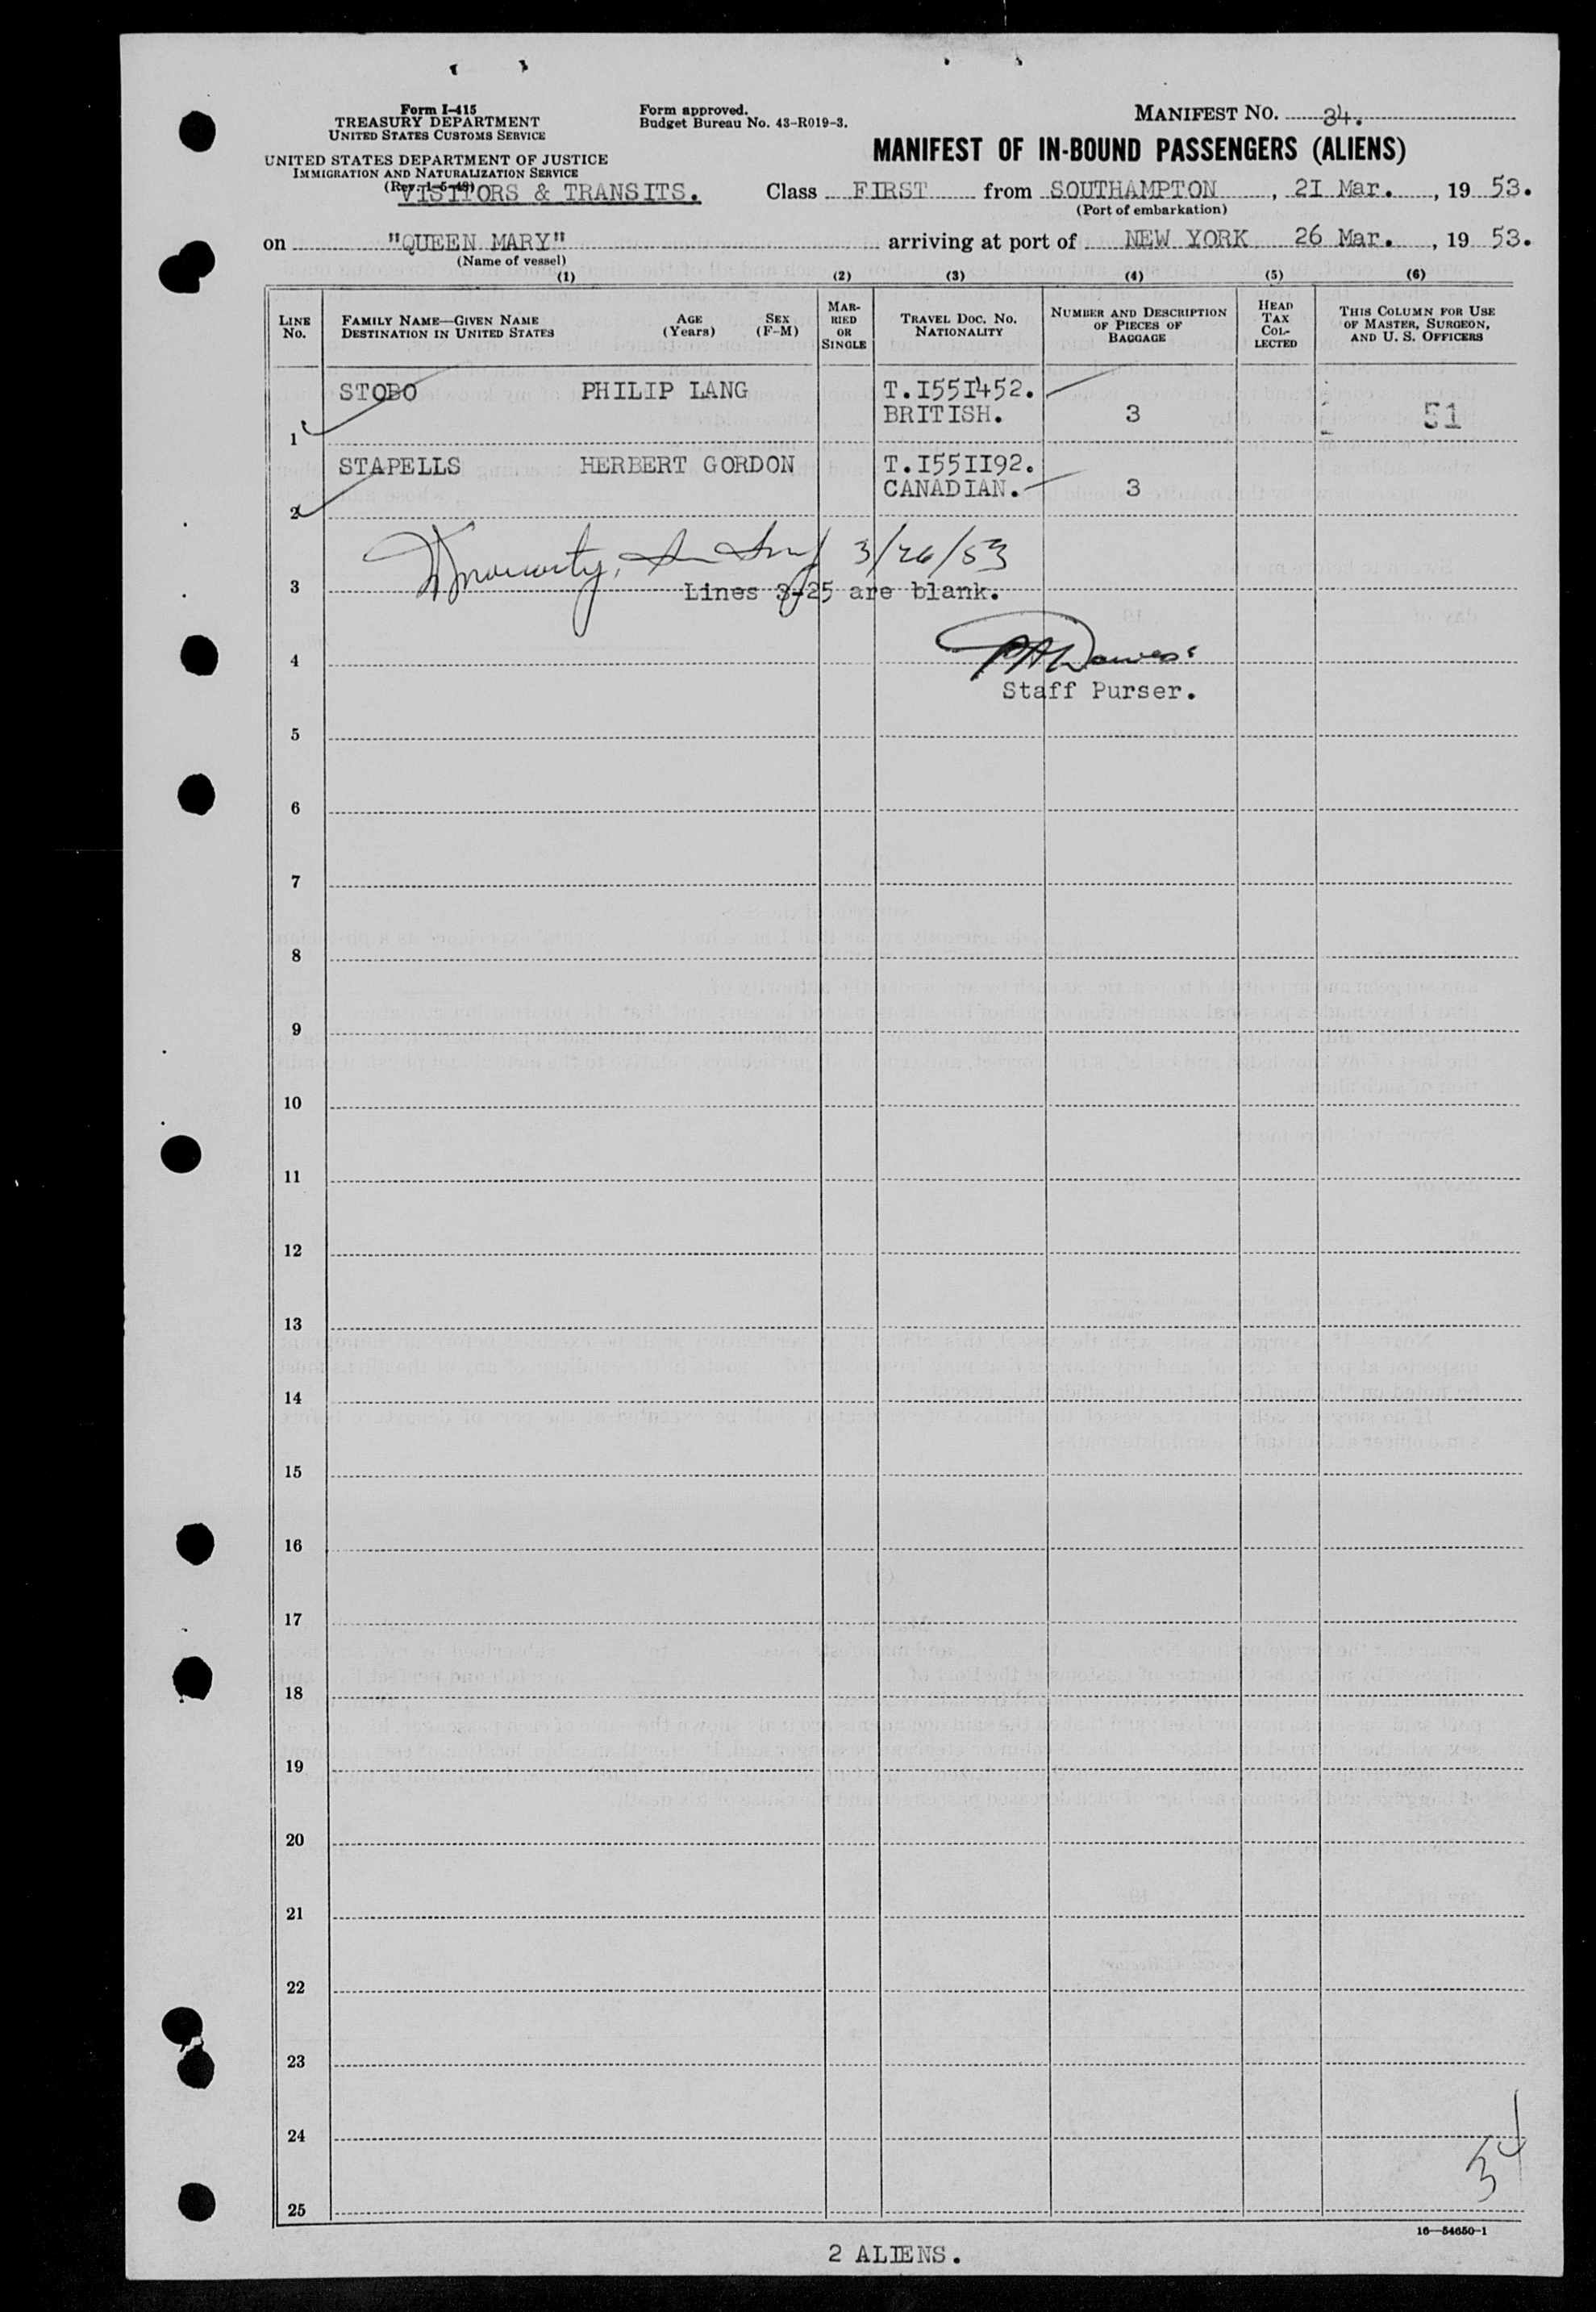 Form I-415
TREASURY DEPARTMENT
UNITED STATES CUSTOMS SERVICE
UNITED STATES DEPARTMENT OF JUSTICE
IMMIGRATION AND NATURALIZATION SERVICE
(Rev. 1-5-48)
VISITORS & TRANSITS.
Form approved.
Budget Bureau No. 43-R019-3.
MANIFEST NO. 34.
MANIFEST OF IN-BOUND PASSENGERS (ALIENS)
Class FIRST from SOUTHAMPTON, 2I Mar., 19 53.
(Port of embarkation)
on "QUEEN MARY" arriving at port of NEW YORK 26 Mar., 19 53.
(Name of vessel)
(1) (2) (3) (4) (5) (6)
LINE No.
FAMILY NAME—GIVEN NAME
DESTINATION IN UNITED STATES
AGE (Years)
SEX (F-M)
MARRIED OR SINGLE
TRAVEL DOC. NO.
NATIONALITY
NUMBER AND DESCRIPTION OF PIECES OF BAGGAGE
HEAD TAX COLLECTED
THIS COLUMN FOR USE OF MASTER, SURGEON, AND U. S. OFFICERS
STOBO PHILIP LANG T.I55I452.
1 BRITISH. 3 51
STAPELLS HERBERT GORDON T.I55II92.
2 CANADIAN. 3
3/26/53
3 Lines 3-25 are blank.
4
Staff Purser.
5
6
7
8
9
10
11
12
13
14
15
16
17
18
19
20
21
22
23
24
34
25
16—54650-1
2 ALIENS.